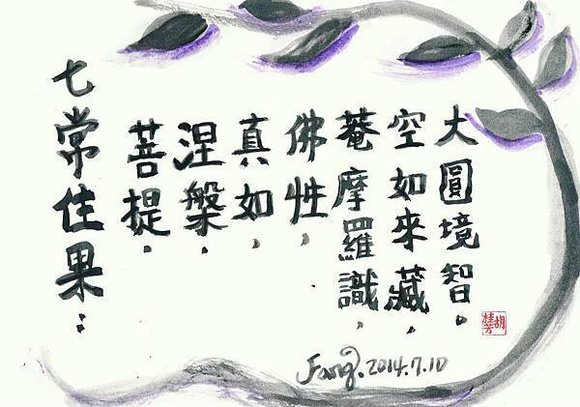 七常住果：
菩提、
涅槃、
真如、
佛性、
菴摩羅識、
空如來藏、
大圓境智。
Fang. 2014.7.10